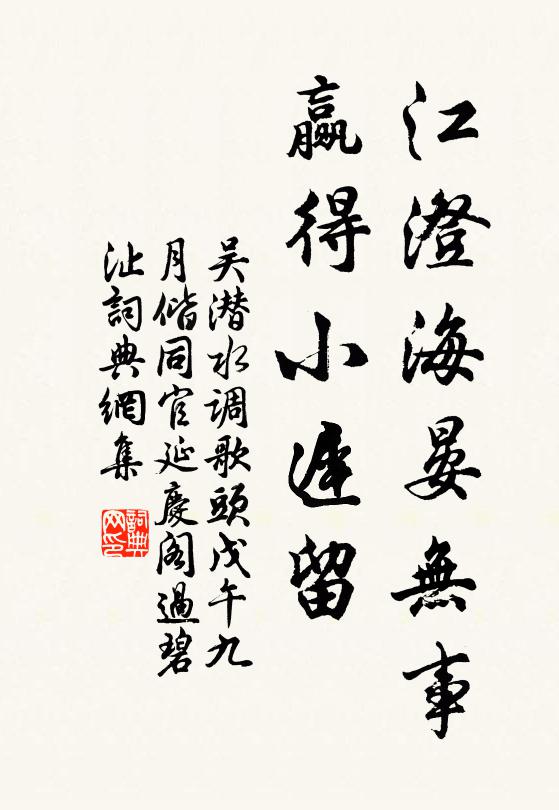 江澄海晏無事
贏得小遲留
吴潛水調歌頭戊午九
月偕同官延慶阁過碧
沚詞典網集
詞典
网印